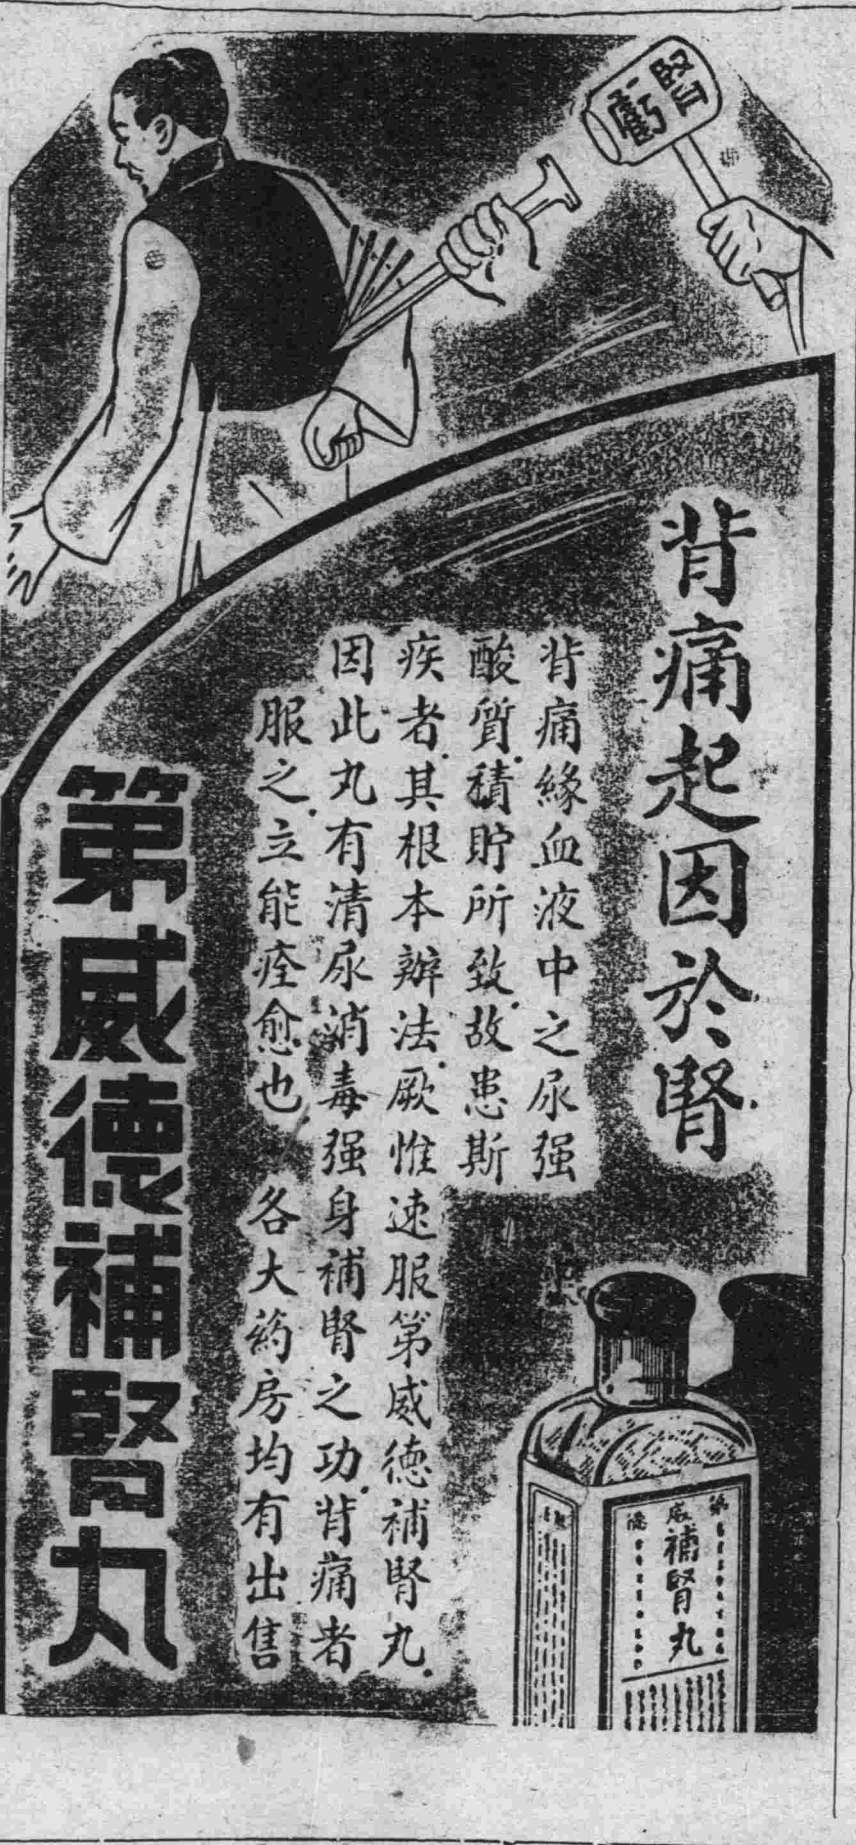 腎虧
背痛起因於腎
背痛緣血液中之尿强
酸質積貯所致故患斯
疾者其根本辦法厥惟速服第威德補腎丸
因此丸有清尿消毒强身補腎之功背痛者
服之立能痊愈也 各大葯房均有出售
第威德補腎丸
第威德
補腎丸